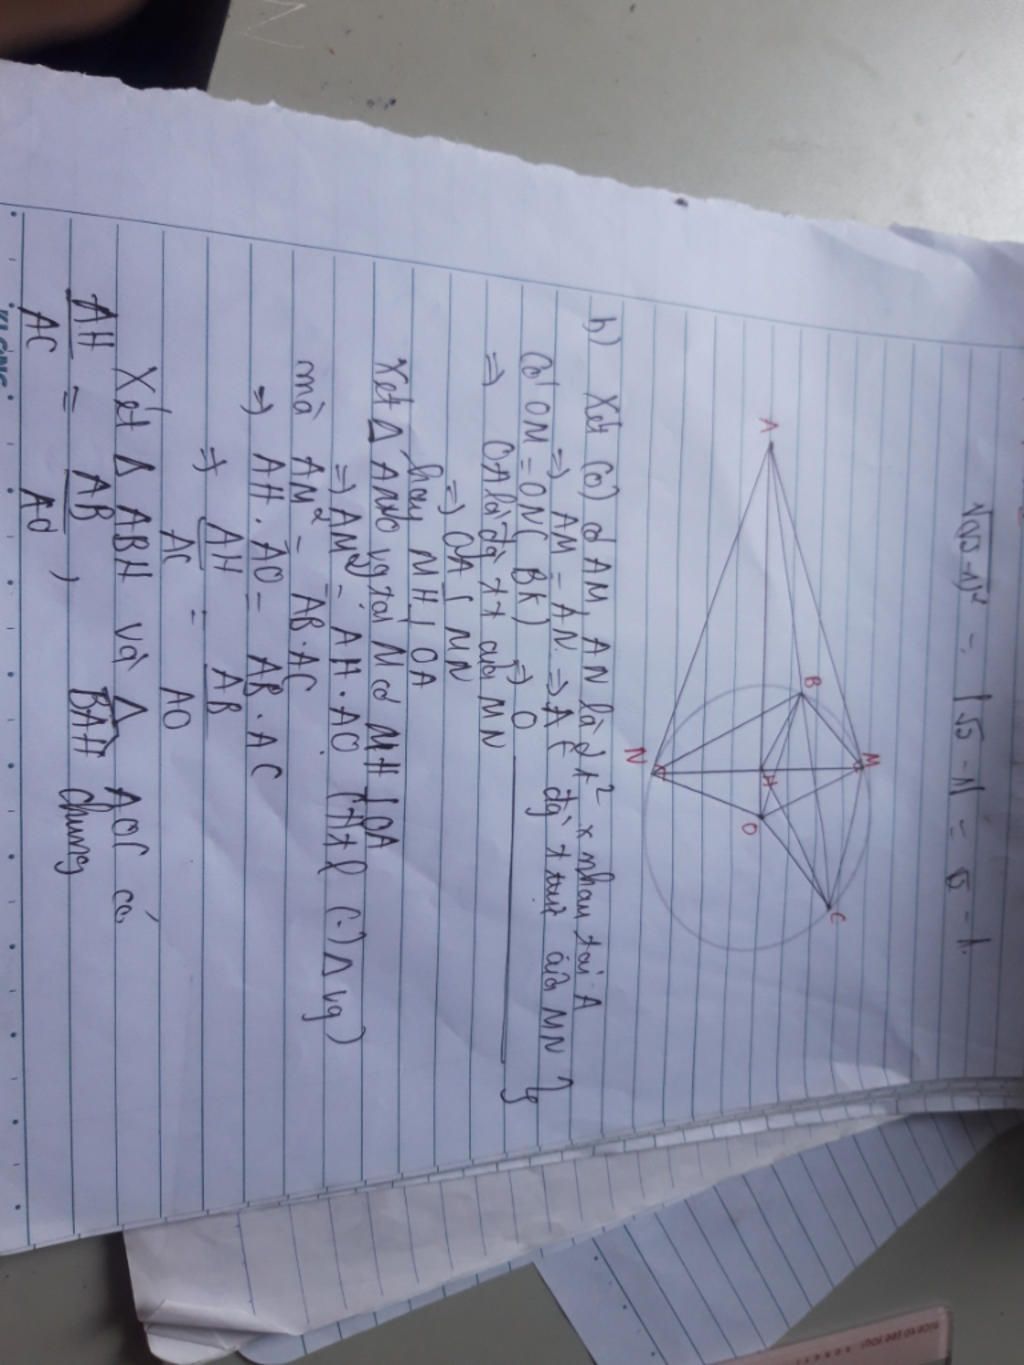 √(√5-1)² = |√5 - 1| = √5 - 1.
A
B
M
N
H
O
C
b) Xét (O) có AM, AN là 2 t² x nhau tại A
=> AM = AN => A ∈ đg` t trực của MN
Có OM = ON ( BK) => O
=> OA là đg` tt của MN
=> OA ⊥ MN
hay MH ⊥ OA
Xét Δ AMO vg tại M có MH ⊥ OA
=> AM² = AH . AO (Htl (-) Δ vg)
mà AM² = AB.AC
=> AH . AO = AB . AC
=> AH/AC = AB/AO
Xét Δ ABH và Δ AOC có
AH/AC = AB/AO , BAH chung
KLONG